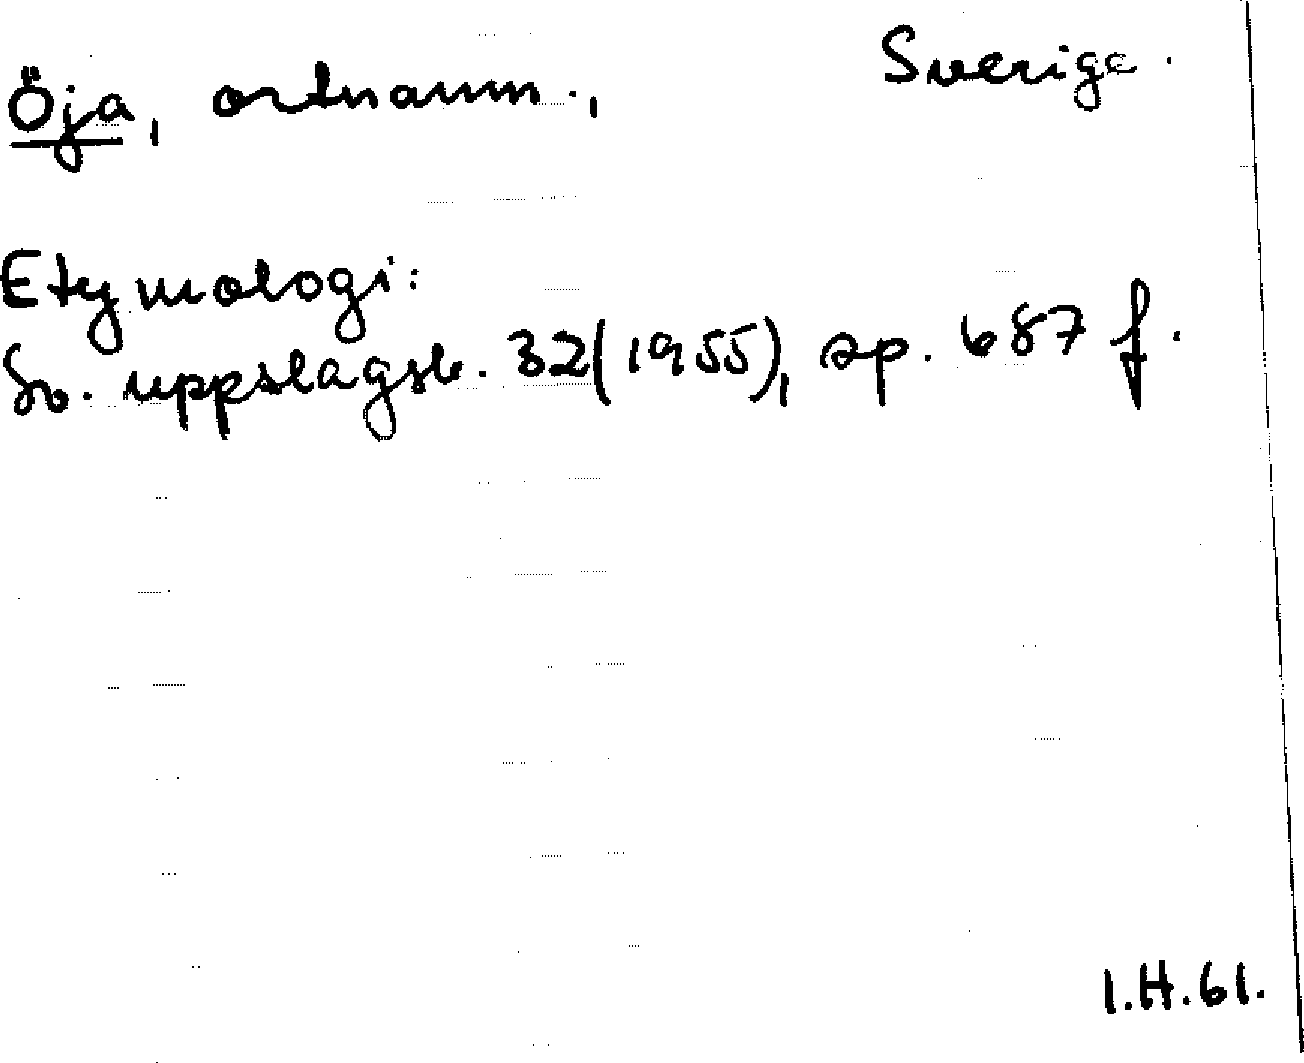 Öja, ortnamn., Sverige.
Etymologi:
Sv. uppslagsb. 32(1955), sp. 687 f.
I.H.61.